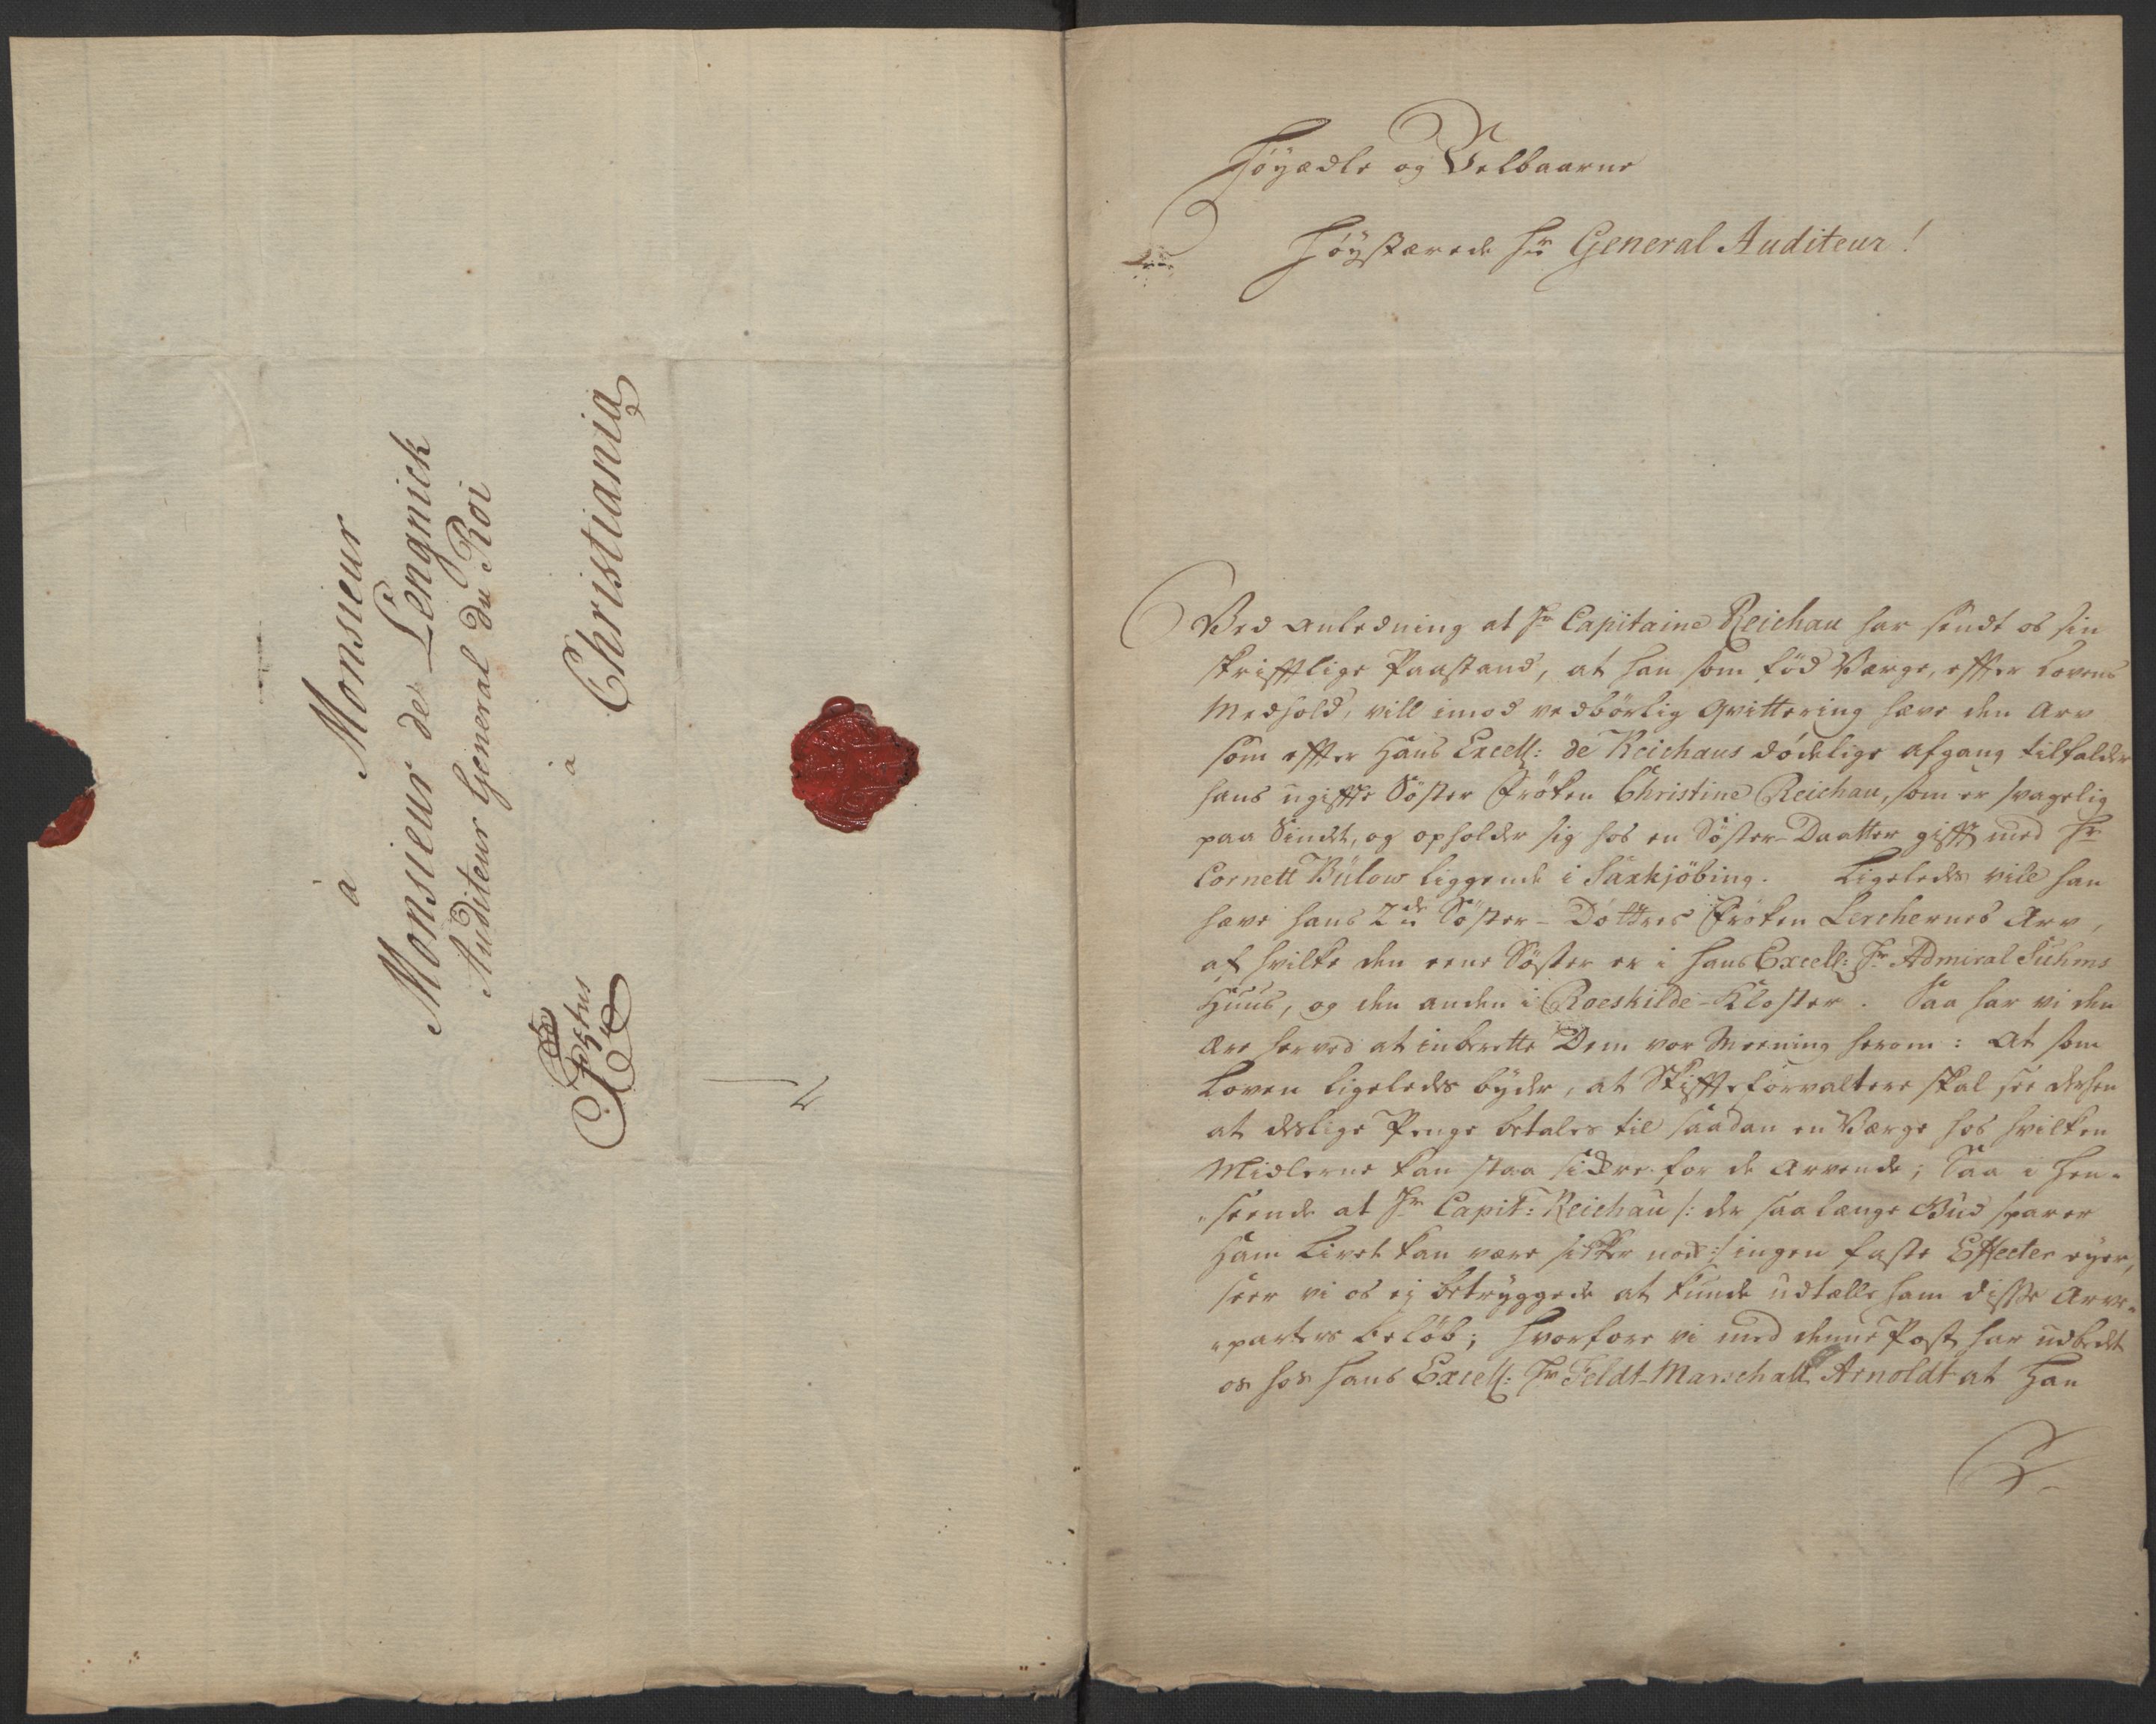 à Monsieur
Monsieur de Lengnick
Auditeur General du Roi
à Christiania
Høyædle og Velbaarne
Høystærede Hr General Auditeur!
Ved anledning at Hr Capitaine Reichau har sendt os sin
skrifftlige Paastand, at han som fød Værge, effter Lovens
Medhold, vill imod vedbørlig Qvittering hæve den Arv
som effter Hans Excell: de Reichaus dødelige afgang tilfalder
hans ugiffte Søster Frøken Christine Reichau, som er svagelig
paa Sindet, og opholder sig hos en Søster-Daatter gifft med Hr
Cornett Bülow liggende i Saxkjøbing. Ligeledes vill han
hæve hans 2de Søster-Døttres Frøken Lerchernes Arv,
af hvilke den eene Søster er i Hans Excell: Hr Admiral Suhms
Huus, og den anden i Roeskilde-Kloster. Saa har vi den
Ære herved at inberette Dem vor Meening herom: At som
Loven ligeledes byder, at Skiffteforvaltere skal see derhen
at deslige Penge betales til saadan en Værge hos hvilken
Midlerne kan staa sickre for de Arvende; Saa i Hen-
-seende at Hr Capit: Reichau /: der saa længe Gud sparer
Ham Livet kan være sikker nok :/ ingen faste Effecter eyer,
seer vi os ej betryggede at kunde udtælle ham disse Arve-
-parters beløb; hvorfore vi med denne Post har udbedt
os hos Hans Excell: Hr Feldt-Marschall Arnoldt at Han